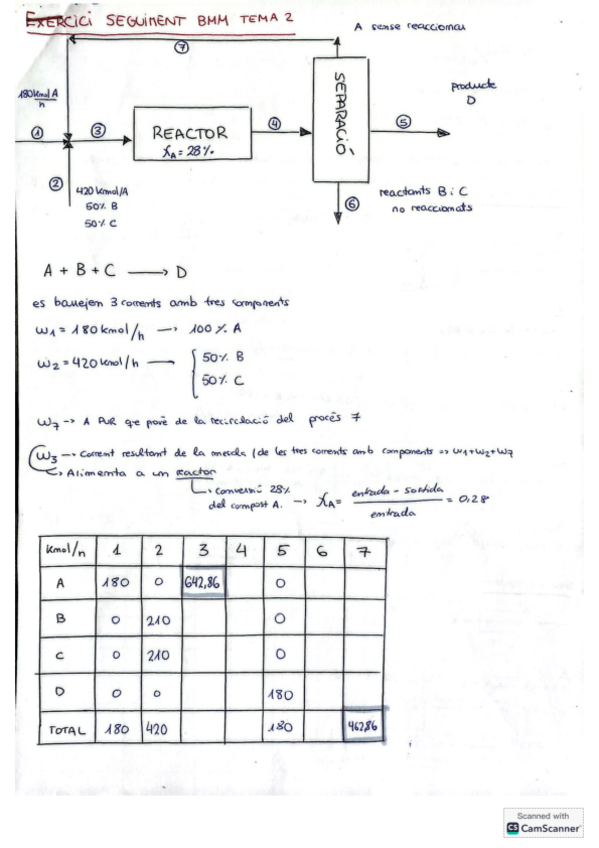 EXERCICI SEGUIMENT BMM TEMA 2
A sense reaccionar
7
180 Kmol A
h
SEPARACIÓ
producte
D
1
3
REACTOR
XA = 28%
4
5
2
420 Kmol/h
50% B
50% C
6
reactants B i C
no reaccionats
A + B + C → D
es barregen 3 corrents amb tres components
W1 = 180 kmol/h → 100% A
W2 = 420 kmol/h → 50% B
50% C
W7 → A PUR que prové de la recirculació del procés 7
W3 → Corrent resultant de la mescla (de les tres corrents amb components => W1+W2+W7
↳ Alimenta a un reactor
↳ conversió 28%
del compost A. → XA = entrada - sortida = 0,28
entrada
Kmol/h 1 2 3 4 5 6 7
A 180 0 642,86 0
B 0 210 0
C 0 210 0
D 0 0 180
TOTAL 180 420 180 462,86
Scanned with
CS CamScanner